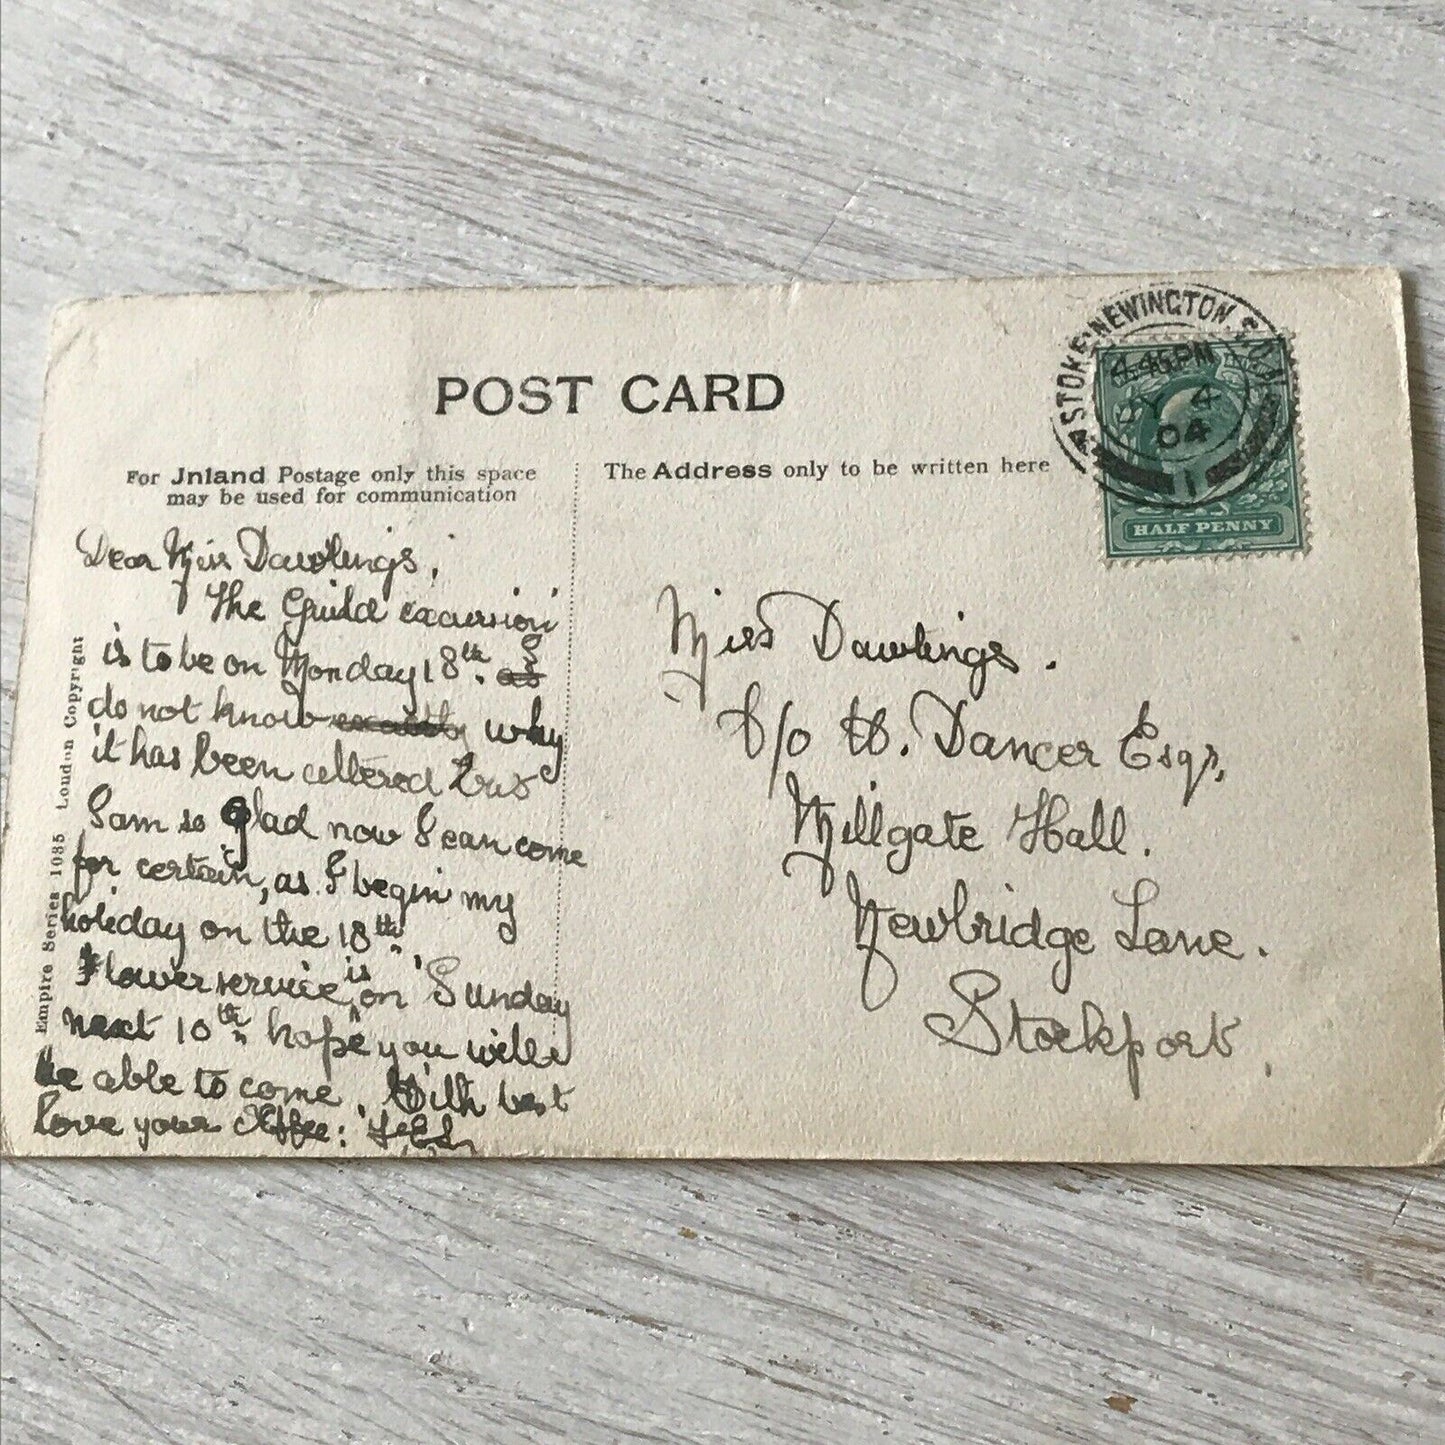 POST CARD
For Inland Postage only this space
may be used for communication
The Address only to be written here
STOKE NEWINGTON
4.45 PM
JY 4
04
1
HALF PENNY
Dear Miss Dawlings,
The Guild excursion
is to be on Monday 18th. as I
do not know exactly why
it has been altered but
I am so glad now I can come
for certain, as I begin my
holiday on the 18th
Flower service is on Sunday
next 10th hope you will
be able to come. With best
love your
Miss Dawlings.
c/o W. Dancer Esqr,
Millgate Hall.
Newbridge Lane.
Stockport,
Empire Series 1085 London Copyright